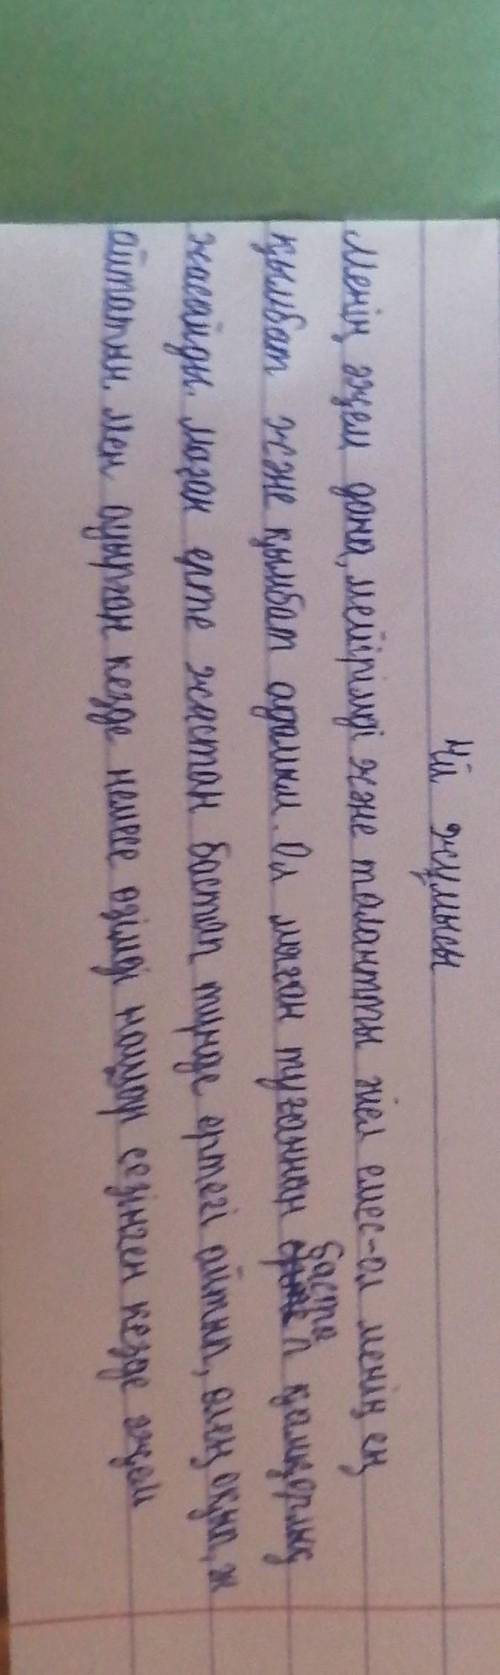 Үй жұмысы
Менің әжем дана, мейірімді және талантты әйел емес-ол менің ең
қымбат және қымбат адамым. Ол маған туғаннан бастап қамқорлық
жасайды. Маған ерте жастан бастап түнде ертегі айтып, өлең оқып, ж
айтатын. Мен ауырған кезде немесе өзімді нашар сезінген кезде әжем